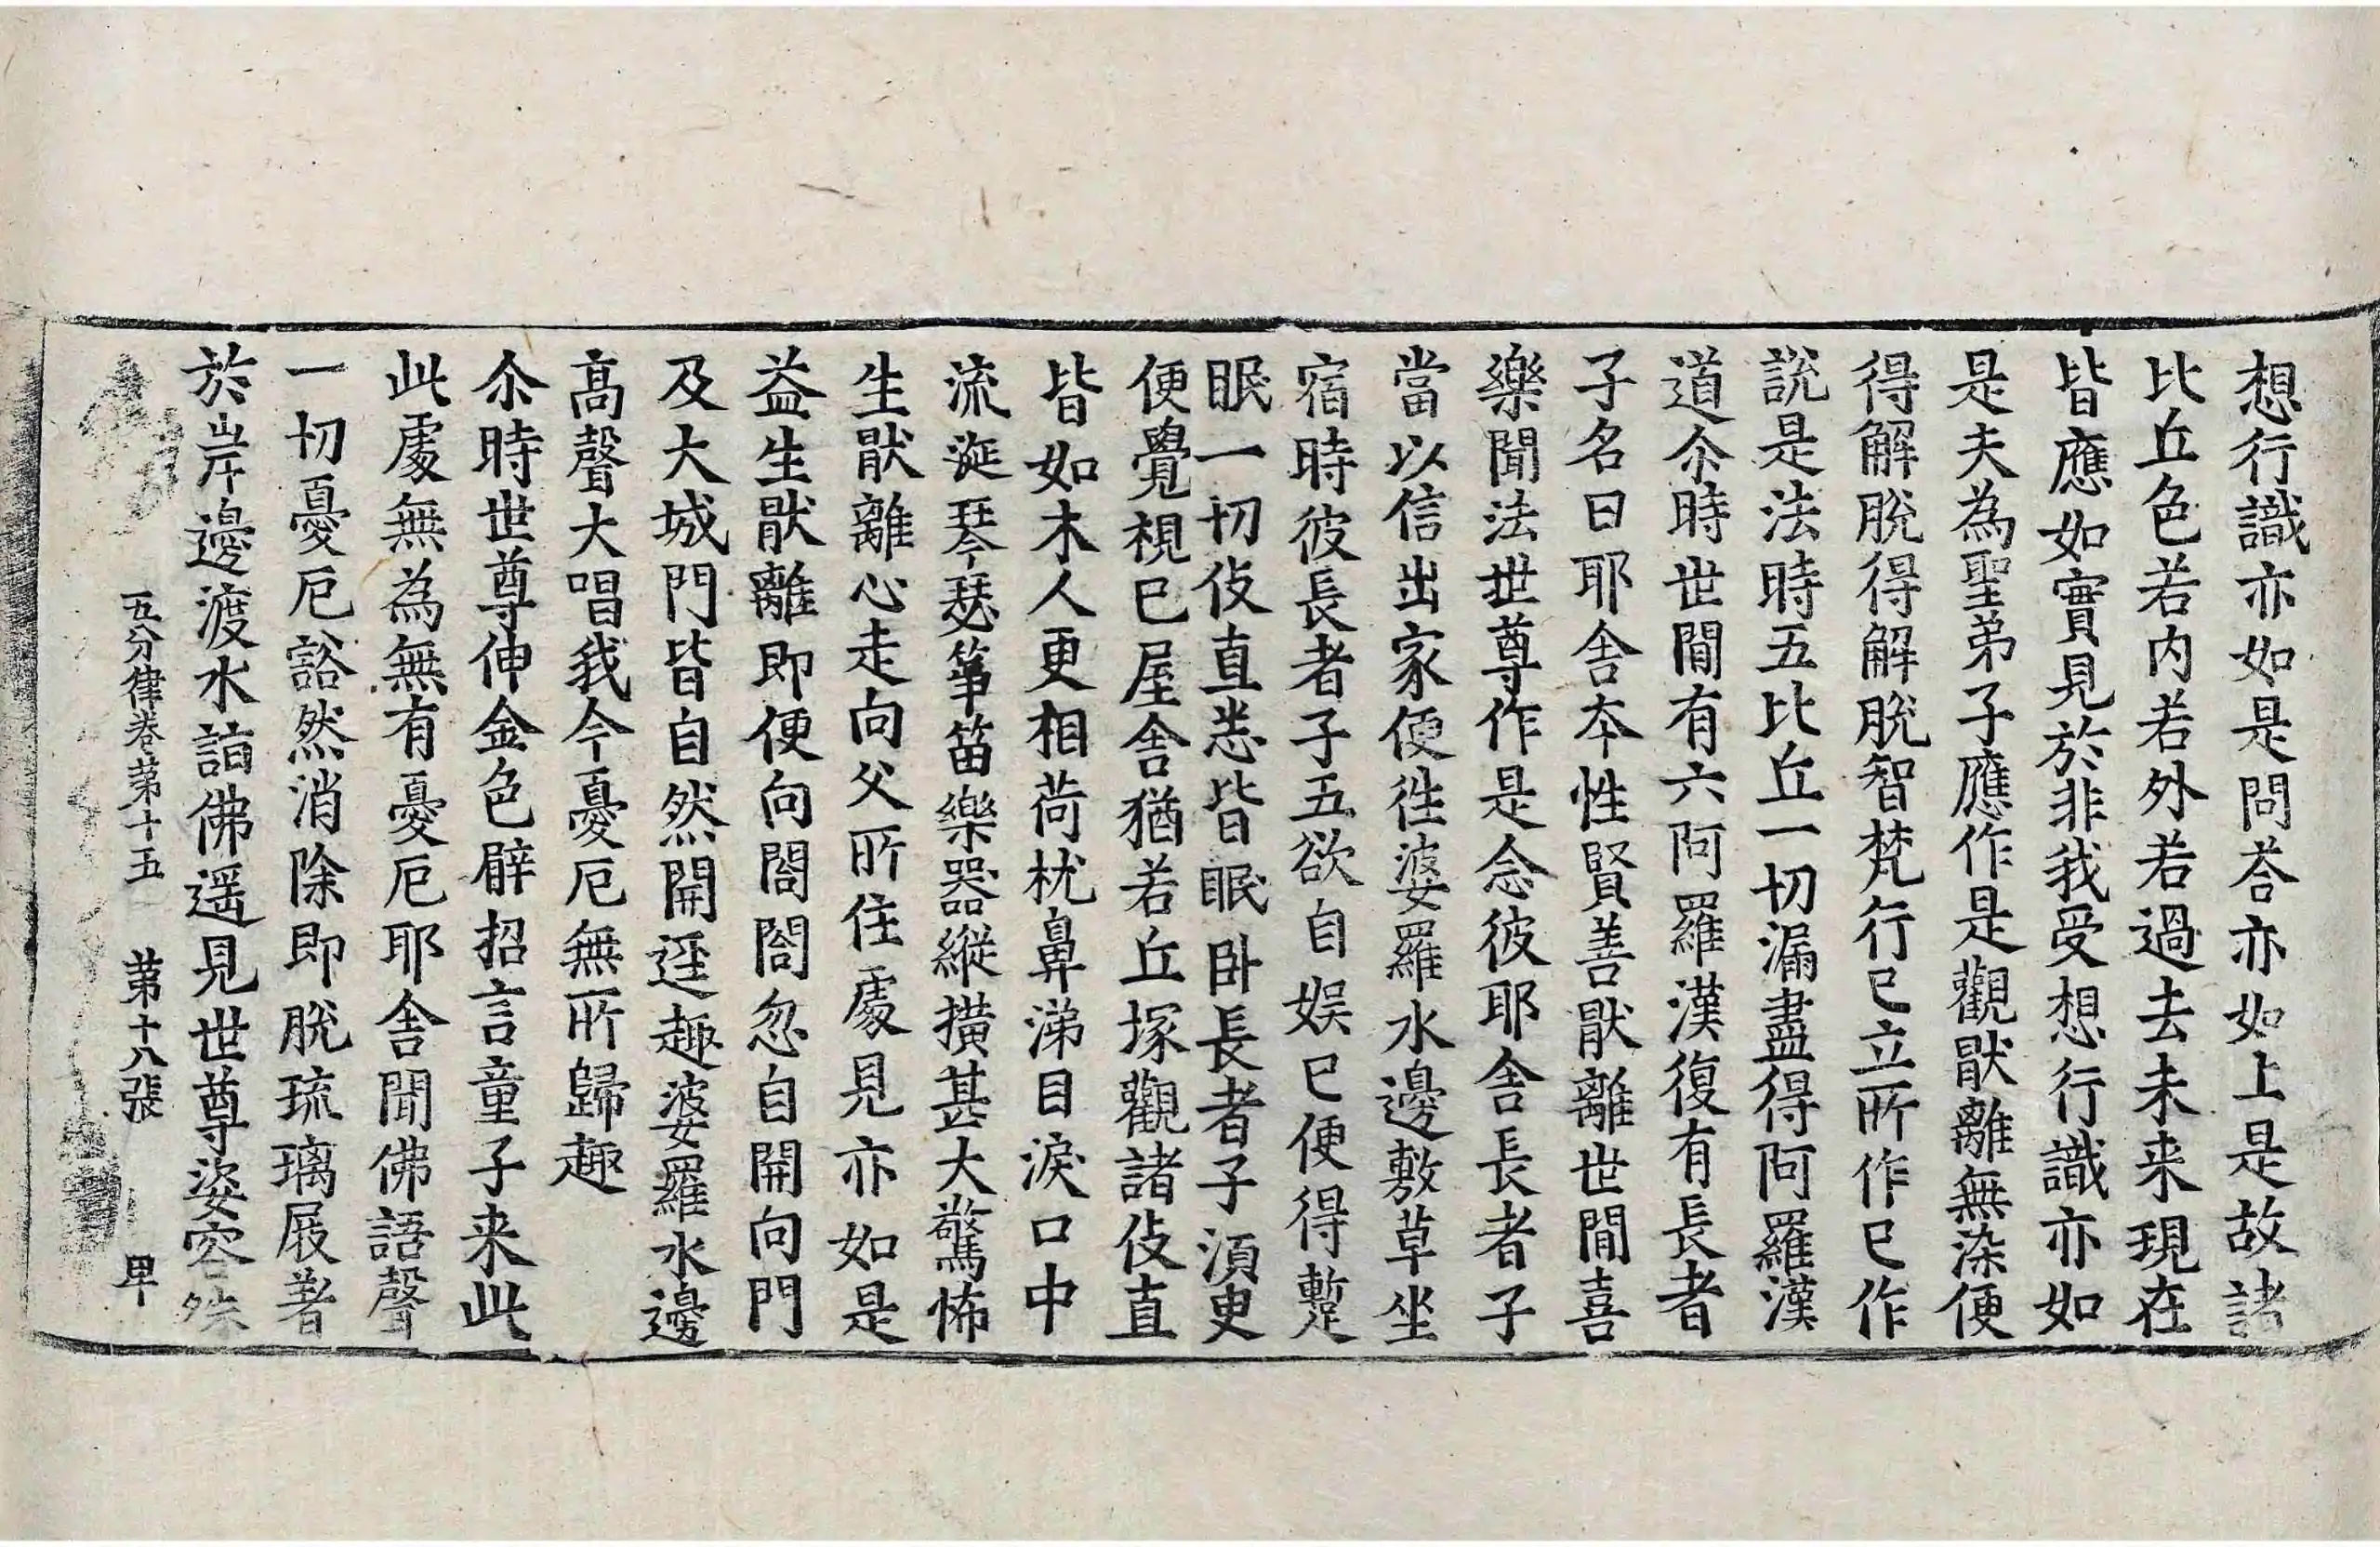 想行識亦如是問荅亦如上是故諸
比丘色若内若外若過去未来現在
皆應如實見於非我受想行識亦如
是夫為聖弟子應作是觀猒離無染便
得解脫得解脫智梵行已立所作已作
說是法時五比丘一切漏盡得阿羅漢
道尒時世間有六阿羅漢復有長者
子名曰耶舎本性賢善猒離世間喜
樂聞法世尊作是念彼耶舎長者子
當以信出家便徃婆羅水邊敷草坐
宿時彼長者子五欲自娱已便得蹔
眠一切伎直悉皆眠卧長者子須臾
便覺視已屋舎猶若丘塚觀諸伎直
皆如木人更相荷枕鼻涕目淚口中
流涎琴瑟筝笛樂器縱撗甚大驚怖
生猒離心走向父所住處見亦如是
益生猒離即便向閤閤忽自開向門
及大城門皆自然開逕趣婆羅水邊
髙聲大唱我今憂厄無所歸趣
尒時世尊伸金色臂招言童子来此
此處無為無有憂厄耶舎聞佛語聲
一切憂厄豁然消除即脫琉璃屐著
於岸邊渡水詣佛遥見世尊姿容殊
五分律卷第十五　第十八張　甲